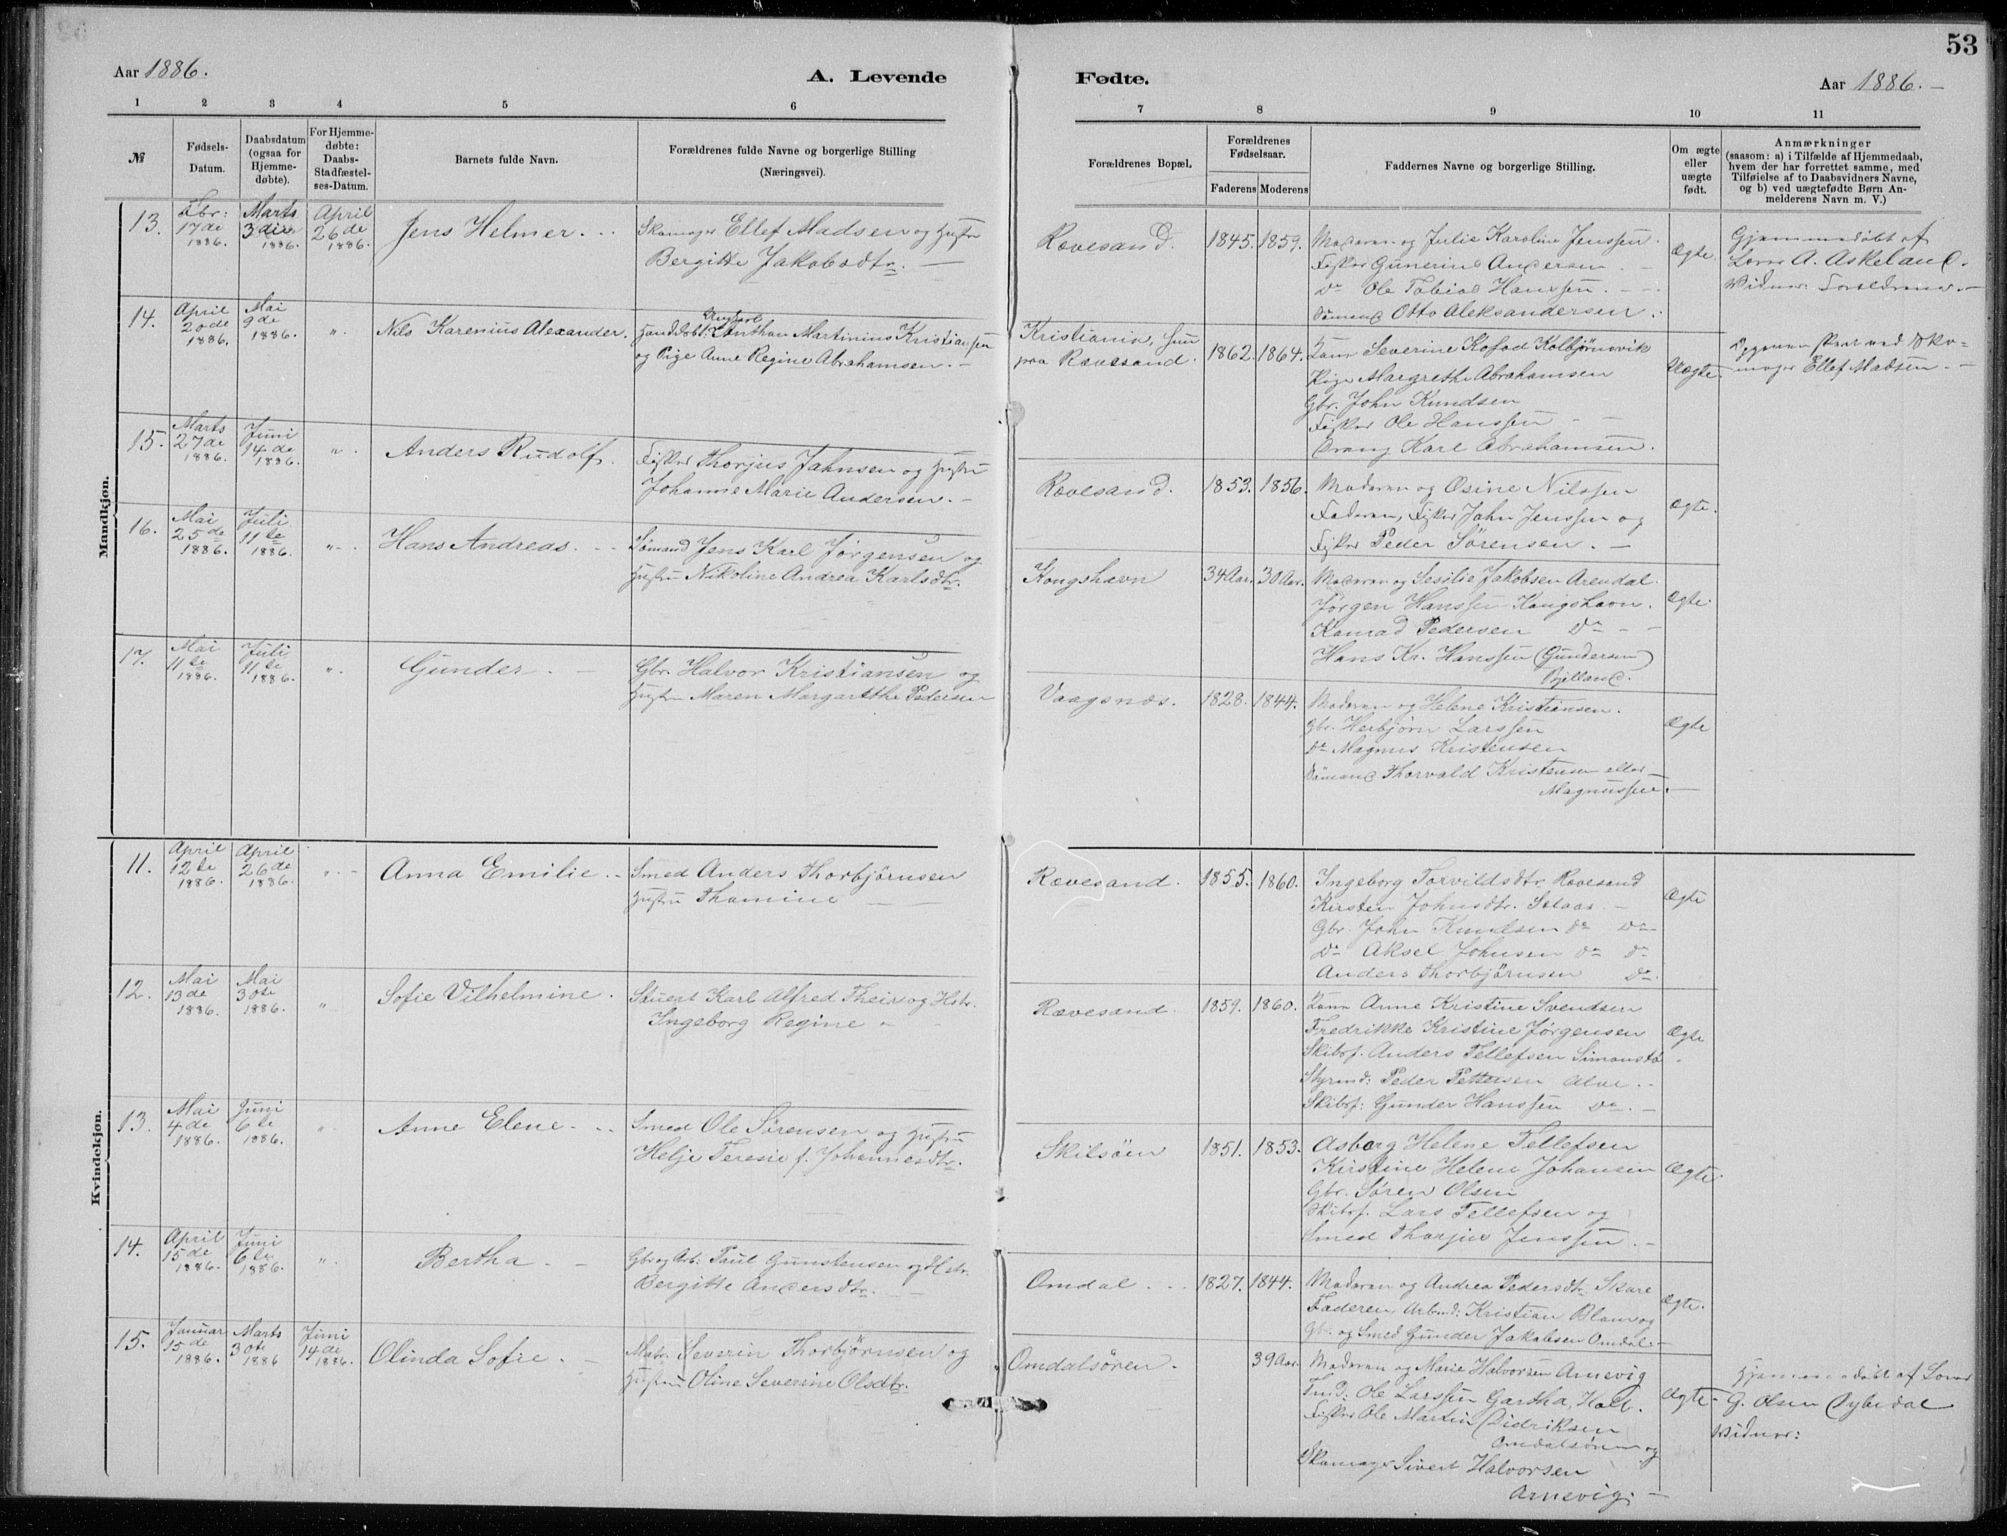 53
Aar 1886.
A. Levende
Fødte.
Aar 1886.
1 2 3 4 5 6 7 8 9 10 11
№
Fødsels-
Datum.
Daabsdatum
(ogsaa for
Hjemme-
døbte).
For Hjemme-
døbte:
Daabs-
Stadfæstel-
ses-Datum.
Barnets fulde Navn.
Forældrenes fulde Navne og borgerlige Stilling
(Næringsvei).
Forældrenes Bopæl.
Forældrenes
Fødselsaar.
Faderens Moderens
Faddernes Navne og borgerlige Stilling.
Om ægte
eller
uægte
født.
Anmærkninger
(saasom: a) i Tilfælde af Hjemmedaab,
hvem der har forrettet samme, med
Tilføielse af to Daabsvidners Navne,
og b) ved uægtefødte Børn An-
melderens Navn m. V.)
Mandkjøn.
13.
Fbr:
17de
1886.
Marts
3die
1886.
April
26de
1886.
Jens Helmer.
Skomager Ellef Madsen og Hustru
Bergitte Jakobsdtr.
Rævesand.
1845. 1859.
Moderen og Julie Karoline Jenssen.
Fisker Gunerius Andersen
Do Ole Tobias Hanssen.
Sømand Otto Aleksandersen.
Ægte.
Hjemmedøbt af
Lærer A. Askeland.
Vidner: Forældrene.
14.
April
20de
1886.
Mai
9de
1886.
"
Nils Karenius Alexander.
Handelsbt. Anthon Martinius Kristiansen
og Pige Anne Regine Abrahamsen.
Kristiania, hun
paa Rævesand.
1862. 1864.
Kone Severine Kofod Kolbjørnsvik
Pige Margrethe Abrahamsen
Gbr. John Knudsen
Fisker Ole Hanssen
Dreng Karl Abrahamsen.
Uægte.
Opgivven strax ved Sko-
mager Ellef Madsen.
15.
Marts
27de
1886.
Juni
14de
1886.
"
Anders Rudolf.
Fisker Thorjus Jahnsen og Hustru
Johanne Marie Andersen.
Rævesand.
1853. 1856.
Moderen og Osine Nilssen
Faderen, Fisker Jahn Jenssen og
Fisker Peder Sørensen.
Ægte.
16.
Mai
25de
1886.
Juli
11te
1886.
"
Hans Andreas.
Sømand Jens Karl Jørgensen og
Hustru Nikoline Andrea Karlsdtr.
Kongshavn
34 Aar. 30 Aar.
Moderen og Sesilie Jakobsen Arendal.
Jørgen Hanssen Kongshavn.
Konrad Pedersen Do
Hans Kr. Hanssen (Gundersen)
Bjelland.
Ægte.
17.
Mai
11te
1886.
Juli
11te
1886.
"
Gunder.
Gbr. Halvor Kristiansen og
Hustru Maren Margrethe Pedersen
Vaagsnæs.
1828. 1844.
Moderen og Helene Kristensen.
Gbr. Herbjørn Larssen
Do Magnus Kristensen
Sømand Thorvald Kristensen eller
Magnussen.
Ægte
Kvindekjøn.
11.
April
12te
1886.
April
26de
1886.
"
Anna Emilie.
Smed Anders Thorbjørnsen
Hustru Thomine
Rævesand.
1855. 1860.
Ingeborg Torvildsdtr. Rævesand
Kirsten Johnsdtr.
Gbr. John Knudsen Do Do
Do Aksel Johnsen Do Do
Anders Thorbjørnsen Do.
Ægte
12.
Mai
13de
1886.
Mai
30te
1886.
"
Sofie Vilhelmine.
Stuert Karl Alfred Theis og Hstr.
Ingeborg Regine
Rævesand.
1859. 1860.
Kone Anne Kristine Svendsen
Fredrikke Kristine Jørgensen
Skibsf. Anders Tellefsen Simonstø
Styrmd: Peder Pettersen Alve.
Skibsf: Gunder Hanssen Do.
Ægte
13.
Mai
4de
1886.
Juni
6te
1886.
"
Anne Elene.
Smed Ole Sørensen og Hustru
Helje Teresie f. Johannesdtr.
Skilsøen
1851. 1853.
Asborg Helene Tellefsen
Kirstine Helene Johansen
Gbr. Søren Olsen
Skibsf. Lars Tellefsen og
Smed Thorjus Jenssen.
Ægte.
14.
April
15de
1886.
Juni
6te
1886.
"
Bertha.
Gbr og Arb: Paul Gunstensen og Hstr.
Bergitte Andersdtr.
Omdal.
1827. 1844.
Moderen og Andrea Pedersdtr. Skare
Faderen Arb.md: Kristian Blom og
Gbr. og Smed Gunder Jakobsen Omdal.
Ægte.
15.
Januar
15de
1886.
Marts
30te
1886
Juni
14de
1886.
Olinda Sofie.
Matr. Severin Thorbjørnsen og
Hustru Oline Severine Olsdtr.
Omdalsøren.
39 Aar.
Moderen og Marie Halvorsen Arnevig
Ole Larssen Gartha, Holt.
Fisker Ole Martin Didriksen
Omdalsøren og
Skomager Sivert Halvorsen
Arnevig.
Ægte.
Hjemmedøbt af Lærer
G. Olsen Dybedal
Vidner: